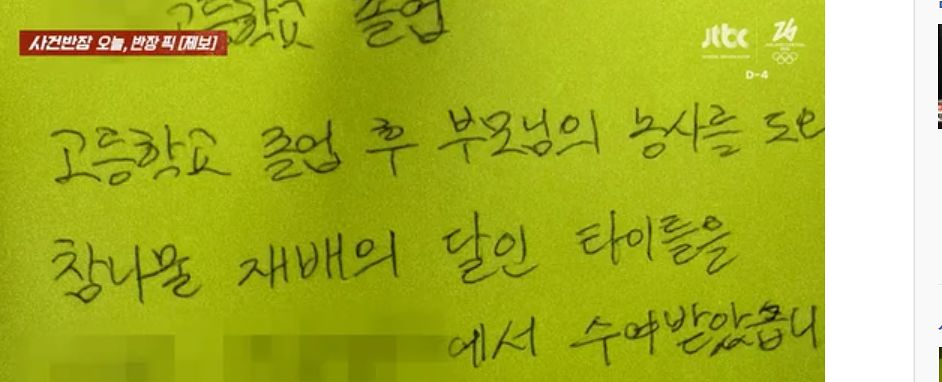 고등학교 졸업
사건반장 오늘, 반장 픽 [제보]
jtbc
D-4
고등학교 졸업 후 부모님의 농사를 도우
참나물 재배의 달인 타이틀을
에서 수여받았습니